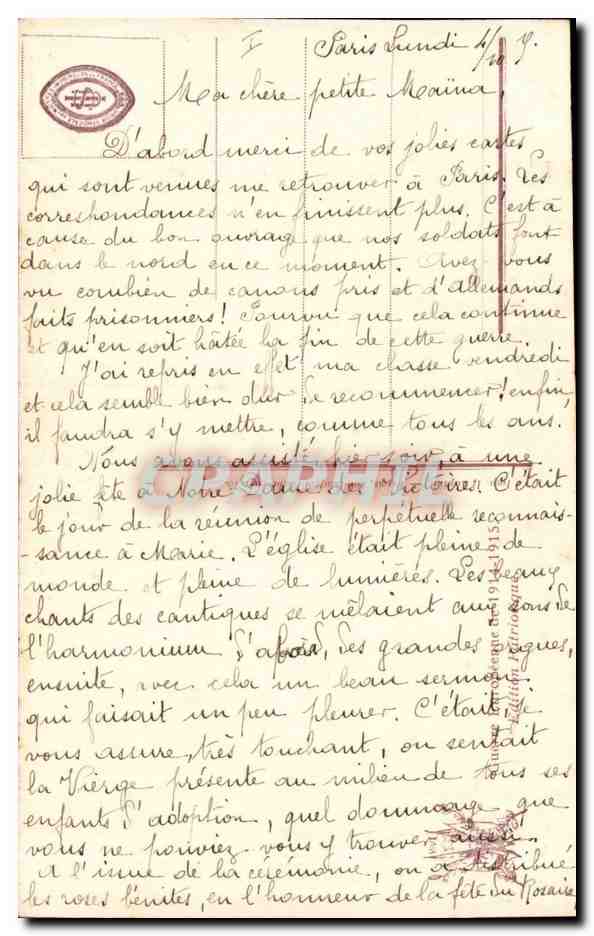 I
Paris Lundi 4/10
Ma chère petite Maïna,
D'abord merci de vos jolies cartes
qui sont venues me retrouver à Paris. Les
correspondances n'en finissent plus. C'est à
cause du bon ouvrage que nos soldats font
dans le nord en ce moment. Avez-vous
vu combien de canons pris et d'Allemands
faits prisonniers! Pourvu que cela continue
et qu'en soit hâtée la fin de cette guerre.
J'ai repris en effet ma classe vendredi
et cela semble bien dur de recommencer! enfin,
il faudra s'y mettre, comme tous les ans.
Nous avons assisté hier soir, à une
jolie fête à Notre Dame des Victoires. C'était
le jour de la réunion de perpétuelle reconnais-
-sance à Marie. L'église était pleine de
monde et pleine de lumières. Les beaux
chants des cantiques se mêlaient aux sons de
l'harmonium d'abord, des grandes orgues,
ensuite, avec cela un beau sermon
qui faisait un peu pleurer. C'était, je
vous assure, très touchant, on sentait
la Vierge présente au milieu de tous ses
enfants d'adoption, quel dommage que
vous ne pouviez vous y trouver aussi.
A l'issue de la cérémonie, on a distribué
les roses bénites, en l'honneur de la fête du Rosaire
Guerre Européenne de 1914-1915
Edition Patriotique
CPARAMA